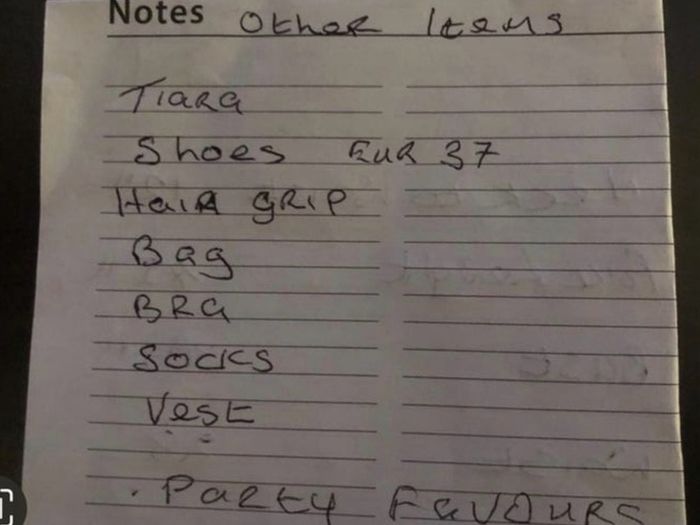 Notes Other Items
Tiara
Shoes EUR 37
Hair grip
Bag
BRa
Socks
Vest
. Party Favours